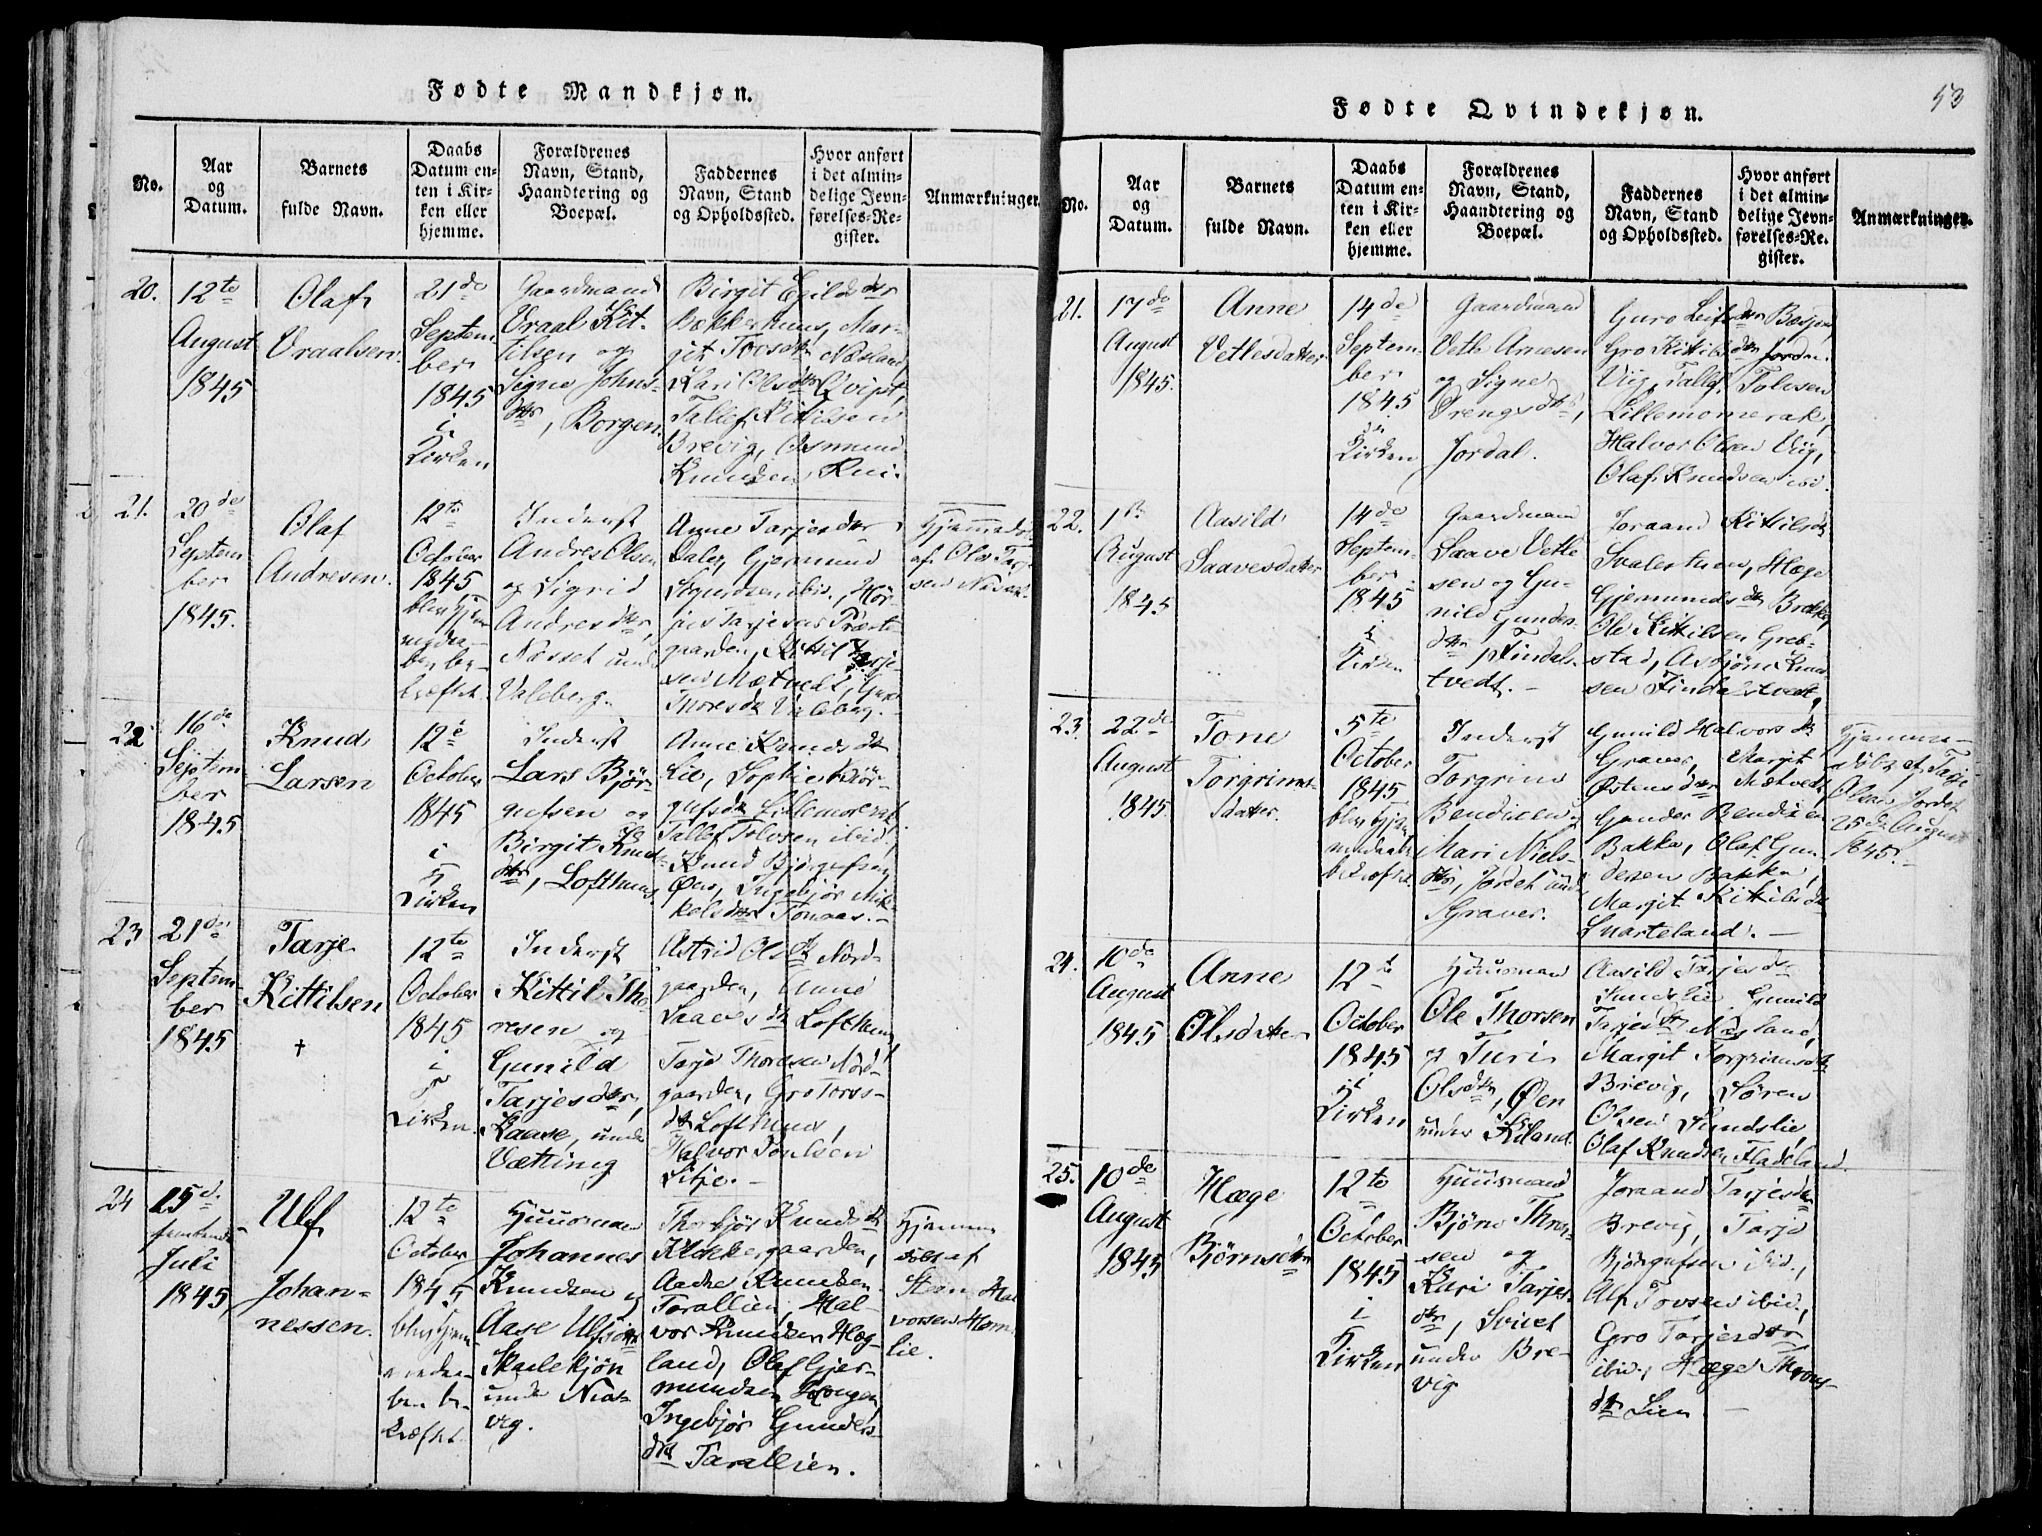 Fødte Mandkjøn.
No.
Aar
og
Datum.
Barnets
fulde Navn.
Daabs
Datum en-
ten i Kir-
ken eller
hjemme.
Forældrenes
Navn, Stand,
Haandtering og
Boepæl.
Faddernes
Navn, Stand
og Opholdssted.
Hvor anført
i det almin-
delige Jevn-
førelses-Re-
gister.
Anmærkninger.
20.
12te
August
1845
Olaf
Vraalsen.
21de
Septem
ber
1845
i
Kirken
Gaardmand
Vraal Kit-
tilsen og
Signe Johns-
dtr, Borgen.
Birgit Egilsdtr
Bakkerhuus, Mar-
jit Torsdtr Næsland
Kari Olsdtr Qvipt,
Tallef Kittilsen
Brevig, Osmund
Knudsen Rui.
21.
20de
Septem-
ber
1845.
Olaf
Andresen.
12te
October
1845
blev hjem
medaa-
ben be-
kræftet.
Inderst
Andres Olsen
og Sigrid
Andresdtr,
Næsset und
Valeberg.
Anne Tarjesdtr
Dale, Gjermund
ibid.,
Tarjesen Præste
gaarden, Kittil Tarje-
sen Mætvedt,
Thoresdtr Valeberg.
Hjemmedøbt
af Ols Tar
sen
22
16de
Septem
ber
1845
Knud
Larsen
12te
October
1845
i
Kirken
Inderst
Lars Bjør-
gufsen og
Birgit Knuds
dtr, Lofthuus.
Anne Knudsdtr
Lie, Sophie Bjør-
gufsdtr Lillemoerak
Tallef Tolvsen ibid.
Knud Bjørgufsen
Øen, Ingebjør Mik-
kelsdtr Tonaas.-
23
21de
Septem-
ber
1845
Tarje
Kittilsen
†
12te
October
1845
i
Kirken.
Inderst
Kittil Tho
resen og
Gunild
Tarjesdtr,
Kaase, under
Vætting
Astrid Olsdtr Nord-
gaarden, Anne
Saavesdtr Lofthuus
Tarje Thoresen Nord-
gaarden, Gro Torss-
dtr Lofthuus,
Halvor Poulsen
Sitje.-
24
15de
femtende
Juli
1845,
Ulf
Johan-
nessen.
12te
October
1845
blev hjem
medaa-
ben be-
kræftet
Huusman
Johannes
Knudsen og
Aase Ulfsdtr
Skaalekjøn
under Nias-
vig.
Thorbjør Knudsdtr
Klokkergaarden,
Aadne Knudsen
Torallien, Hal-
vor Knudsen Hæg-
land, Olaf Gjer-
mundsen Haugen
Ingebjør Gunders-
dtr Tarallien.
Hjemme
døbt af
Hal
vorsen
lie.
53
Fødte Qvindekjøn.
No.
Aar
og
Datum.
Barnets
fulde Navn.
Daabs
Datum en-
ten i Kir-
ken eller
hjemme.
Forældrenes
Navn, Stand,
Haandtering og
Boepæl.
Faddernes
Navn, Stand
og Opholdssted.
Hvor anført
i det almin-
delige Jevn-
førelses-Re-
gister.
Anmærkninger.
21.
17de
August
1845.
Anne
Vetlesdatter
14de
Septem-
ber
1845
i
Kirken
Gaardmand
Vetle Arnesen
og Signe
Drengsdtr,
Jordal.
Guro Leifsdtr
Gro Kittilsdtr
Viig, Tallef Tolvsen
Lillemomerak,
Halvor Olsen Viig,
Olaf Knudsen ibid.
22.
1ste
August
1845
Aasild
Saavesdatter
14de
Septem-
ber
1845
i
Kirken
Gaardmand
Saave Vetle
sen og Gu-
nild Gunders-
dtr, Findals-
tvedt.-
Joraand Kittilsdtr
Svalestuen, Hæge
Gjermundsdtr Brekke,
Ole Kittilsen Greb-
stad, Asbjørn Knud
sen Findalstvedt
23.
22de
August
1845.
Tone
Torgrims-
datter.
5te
October
1845
blev hjem
medaab
bekræftet
Inderst
Torgrim
Bendixen og
Mari Niels-
dtr, Jordet und
Graver.
Gunild Halvorsdtr
Graver, Margit
Østensdtr Mætvedt
Gunder Bendixen
Bakka, Olaf Gun
dersen Bakka,
Margit Kittilsdtr
Snarteland.-
Hjemme-
døbt af Tarje
Olsen Jordet
25de August
1845.-
24.
10de
August
1845
Anne
Olsdatter
12te
October
1845
i
Kirken
Huusmand
Ole Thorsen
og Turi
Olsdtr, Øen
under Kiland.
Aasild Tarjesdtr
Sundslie Gunild
Tarjesdtr Næsland,
Margit Torgrimsdtr
Brevig, Søren
Olsen Sundslie
Olaf Knudsen Fladeland
25.
10de
August
1845
Hæge
Bjørnsdtr
12te
October
1845
i
Kirken
Huusmand
Bjørn Thors-
sen og
Kari Tarjes-
dtr,
under Bre-
vig
Joraand Tarjesdtr
Brevig, Tarje
Bjørgufsen ibid.,
Alf Tovsen ibid.,
Gro Tarjesdtr
ibid, Hæge Thors-
dtr Lien -